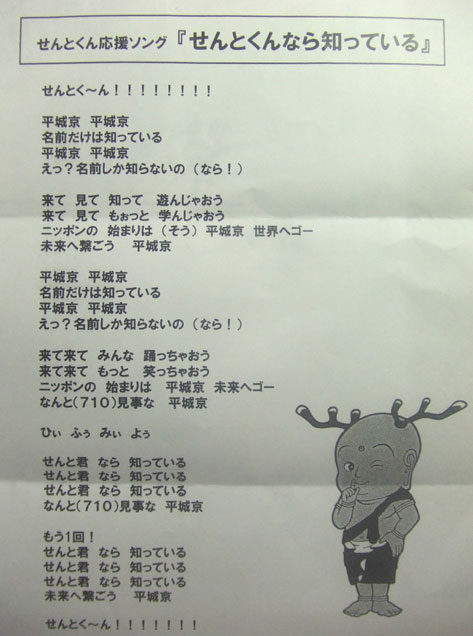 せんとくん応援ソング『せんとくんなら知っている』
せんとく～ん！！！！！！！！
平城京　平城京
名前だけは知っている
平城京　平城京
えっ？名前しか知らないの（なら！）
来て　見て　知って　遊んじゃおう
来て　見て　もぉっと　学んじゃおう
ニッポンの　始まりは（そう）平城京　世界へゴー
未来へ繋ごう　平城京
平城京　平城京
名前だけは知っている
平城京　平城京
えっ？名前しか知らないの（なら！）
来て来て　みんな　踊っちゃおう
来て来て　もっと　笑っちゃおう
ニッポンの　始まりは　平城京　未来へゴー
なんと（７１０）見事な　平城京
ひぃ　ふぅ　みぃ　よぅ
せんと君　なら　知っている
せんと君　なら　知っている
せんと君　なら　知っている
なんと（７１０）見事な　平城京
もう１回！
せんと君　なら　知っている
せんと君　なら　知っている
せんと君　なら　知っている
未来へ繋ごう　平城京
せんとく～ん！！！！！！！